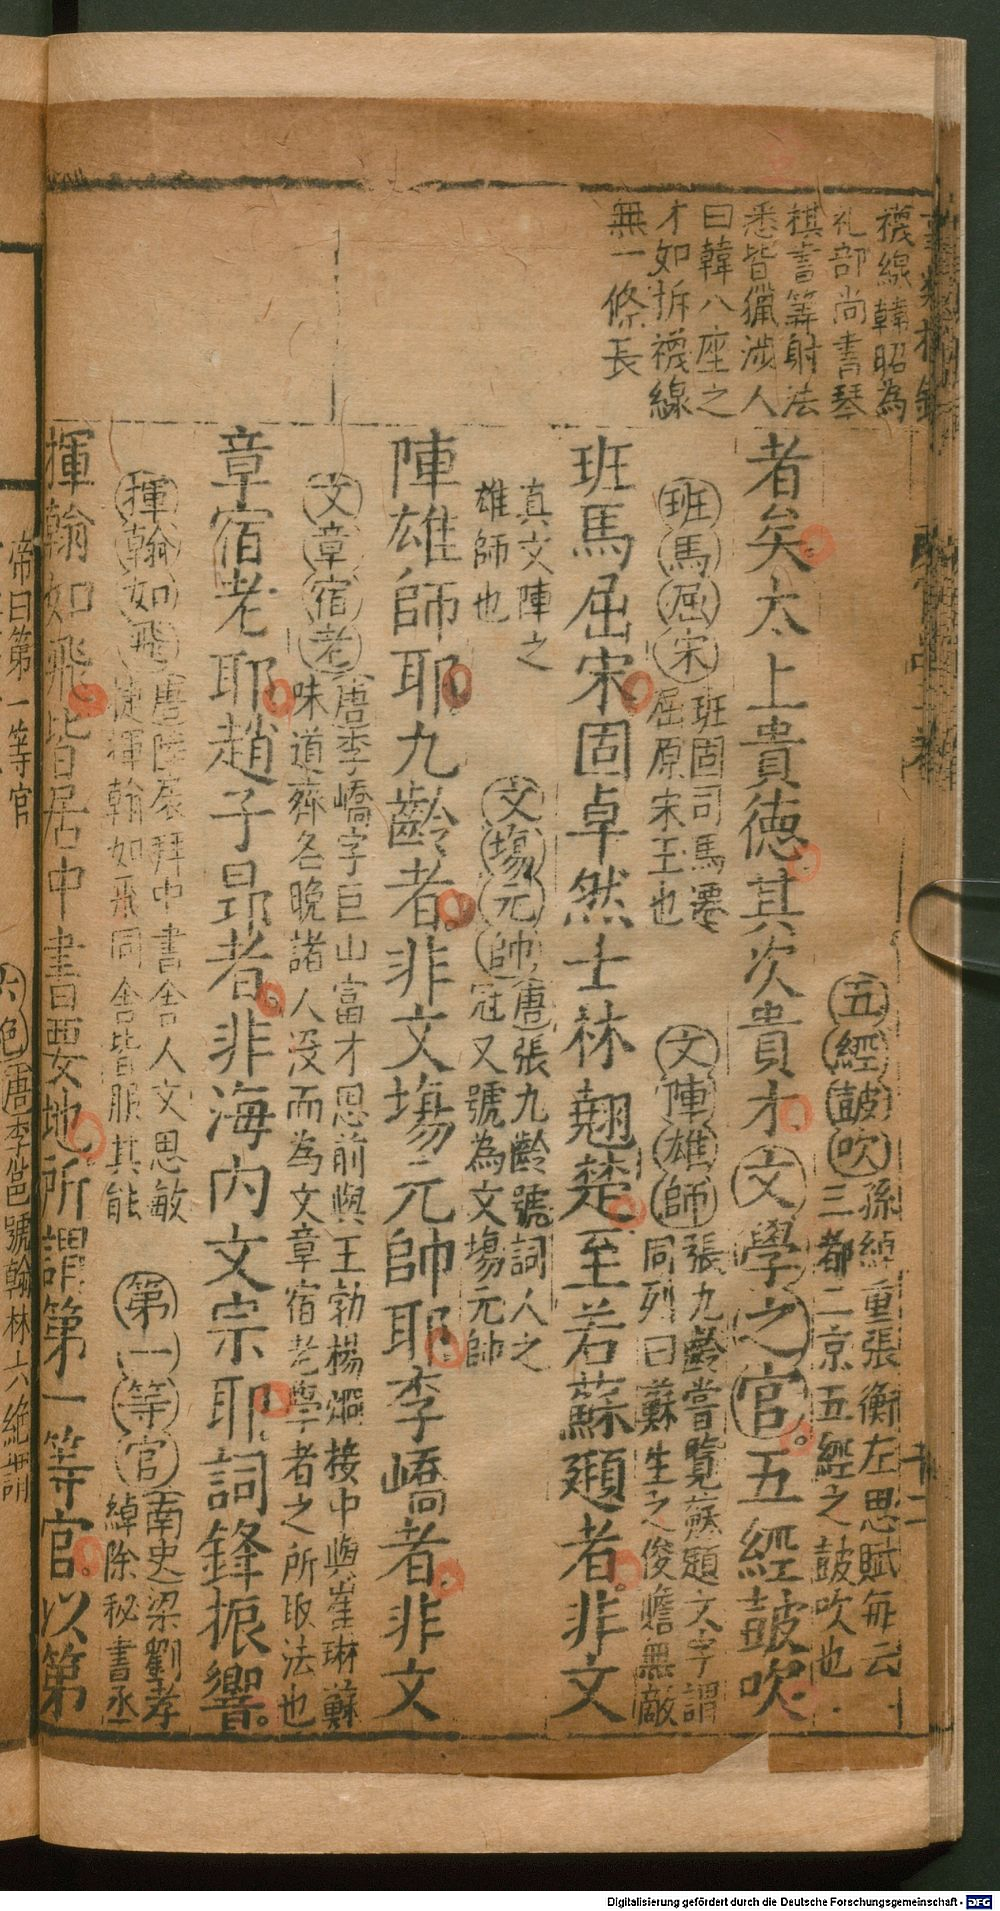 襪線韓昭為
礼部尚書琴
棋書筭射法
悉皆獵涉人
曰韓八座之
才如拆襪線
無一條長
五經鼓吹孫綽重張衡左思賦每云
三都二京五經之鼓吹也
者矣太上貴德其次貴才文學之官五經鼓吹
班馬屈宋班固司馬遷
屈原宋玉也
文陣雄師張九齡嘗覽蘇頲文字謂
同列曰蘇生之俊贍無敵
班馬屈宋固卓然士林翹楚至若蘇頲者非文
真文陣之
雄師也
文場元帥唐張九齡號詞人之
冠又號為文場元帥
陣雄師耶九齡者非文場元帥耶李嶠者非文
文章宿老唐李嶠字巨山富才思前與王勃楊烱接中與崔琳蘇
味道齊名晚諸人沒而為文章宿老學者之所取法也
章宿老耶趙子昻者非海内文宗耶詞鋒振響
揮翰如飛唐陸扆拜中書舍人文思敏
捷揮翰如飛同舍皆服其能
第一等官南史梁劉孝
綽除秘書丞
揮翰如飛皆居中書要地所謂第一等官以第
帝曰第一等官
六絶唐李邕號翰林六絶謂
Digitalisierung gefördert durch die Deutsche Forschungsgemeinschaft - DFG